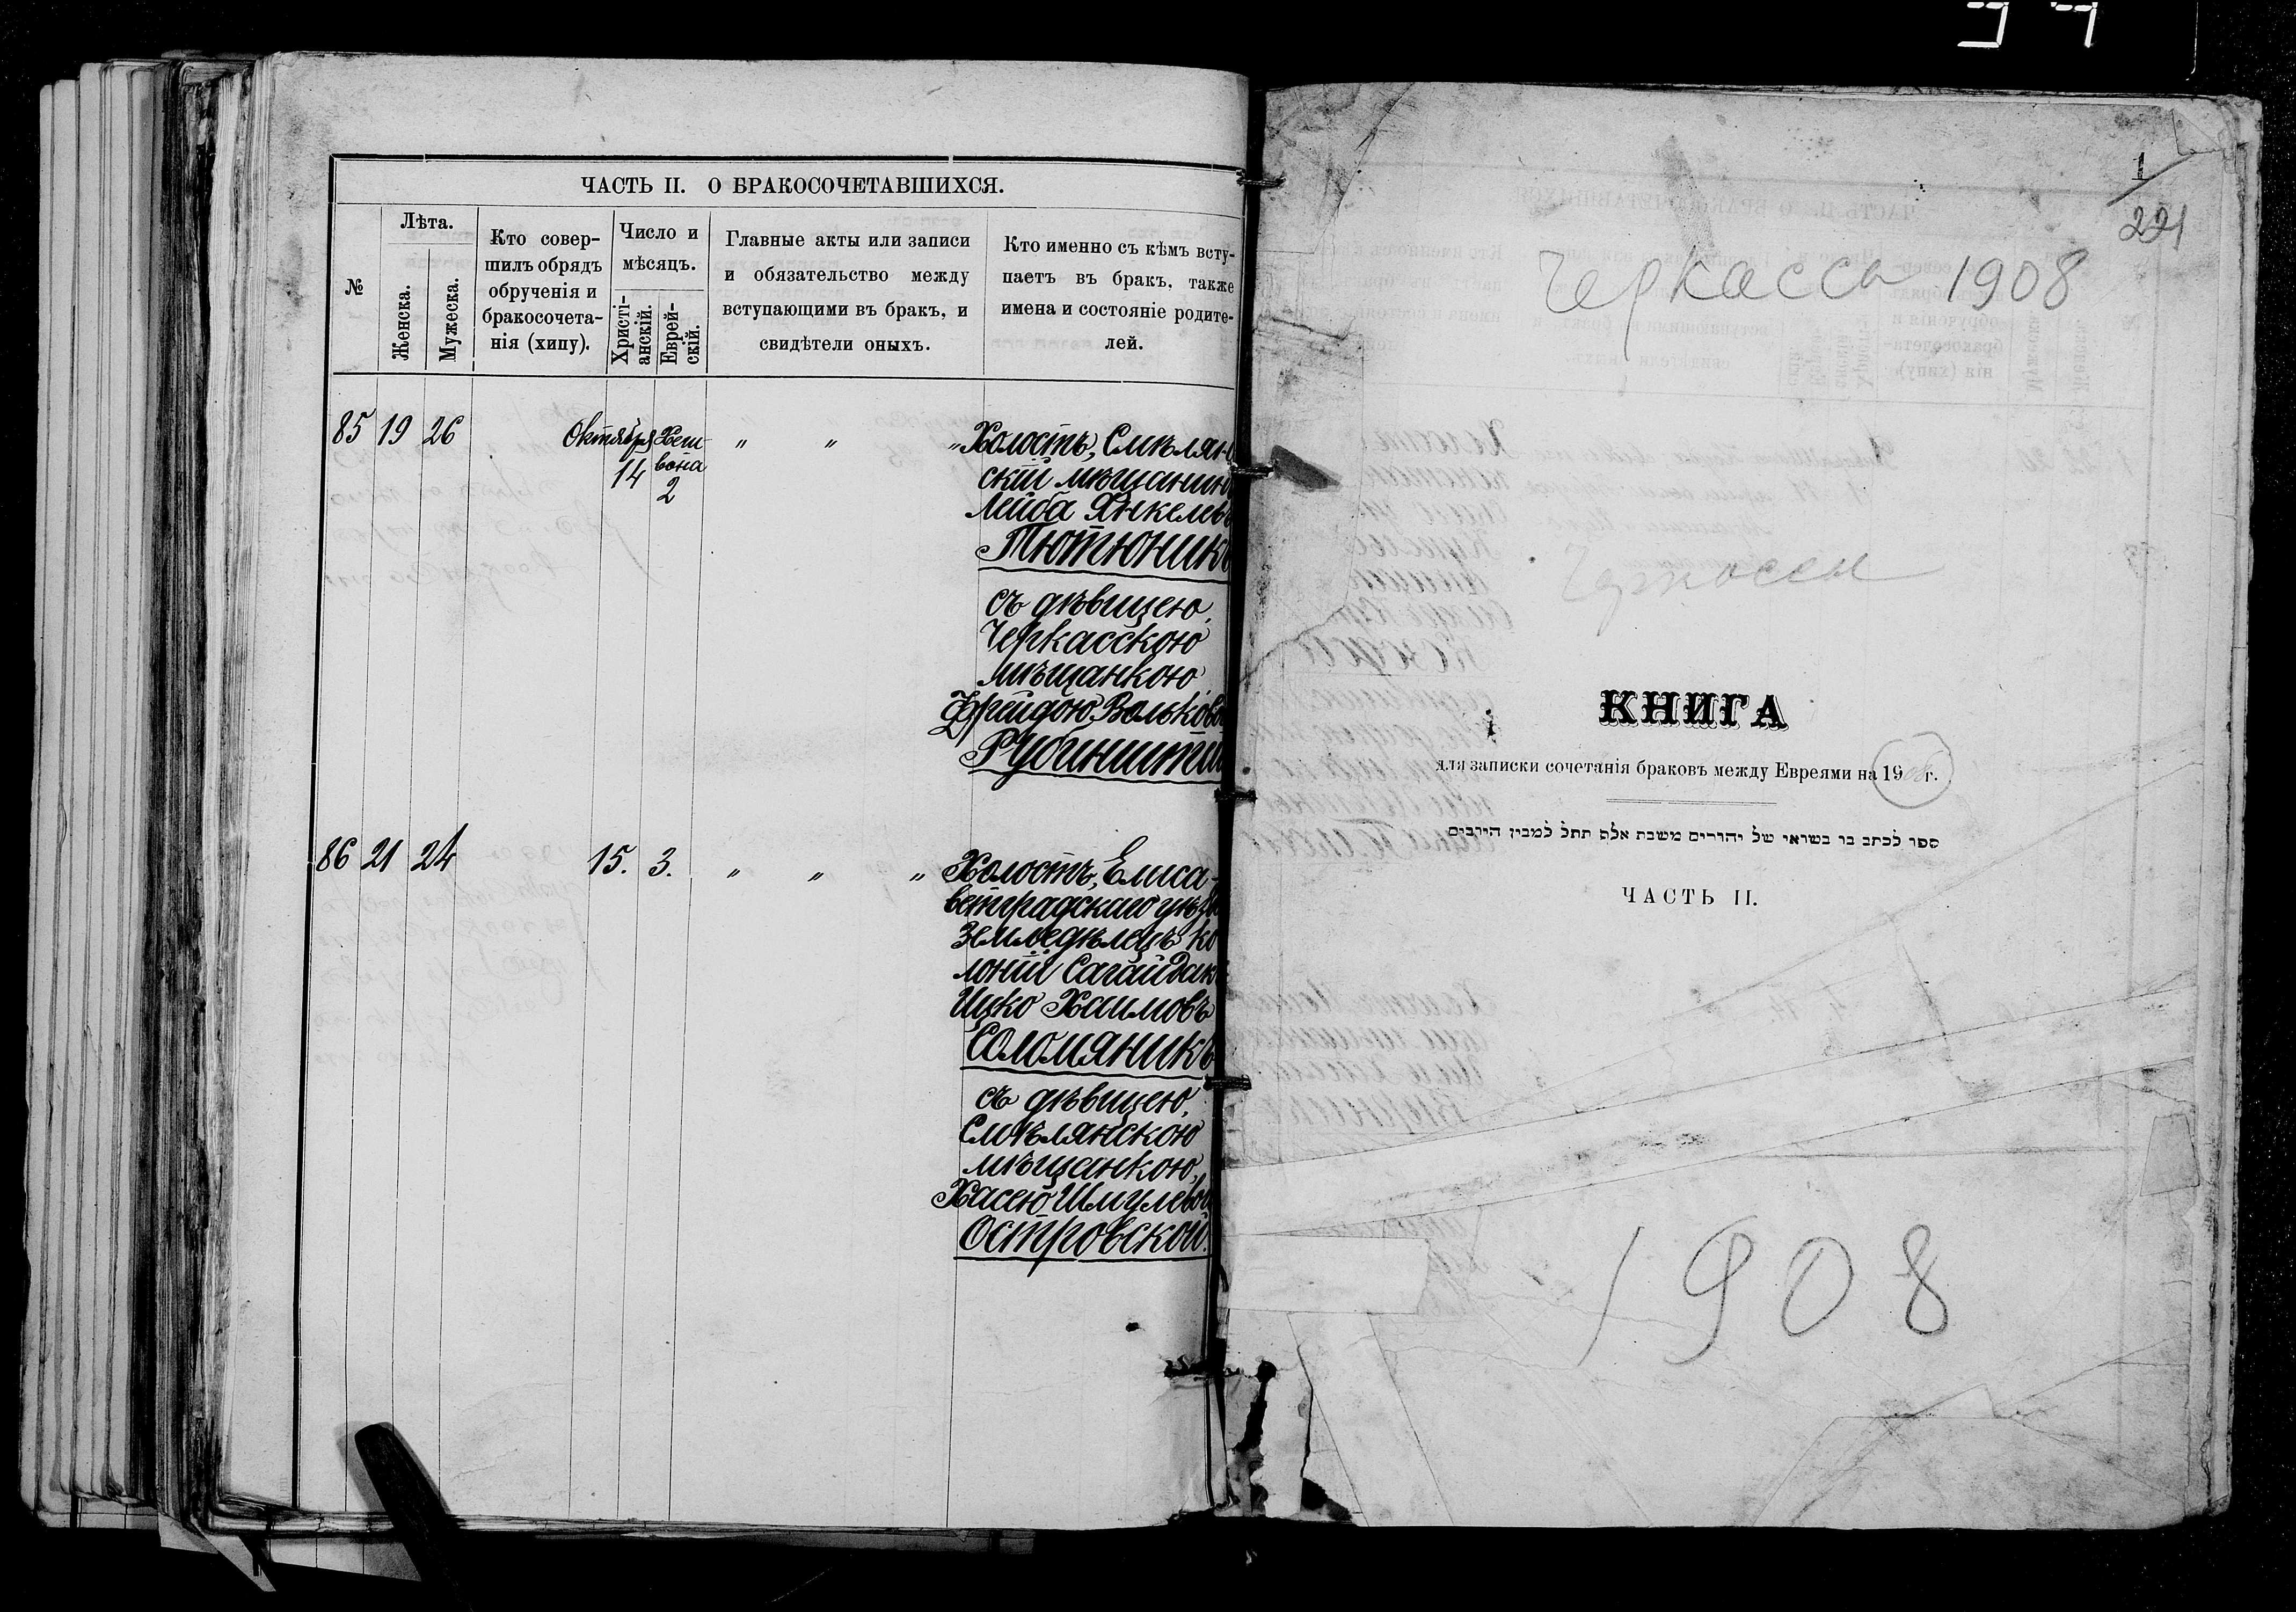 ЧАСТЬ II. О БРАКОСОЧЕТАВШИХСЯ.
№
Лѣта.
Женска.
Мужеска.
Кто совер-
шилъ обрядъ
обрученія и
бракосочета-
нія (хипу).
Число и
мѣсяцъ.
Христі-
анскій.
Еврей-
скій.
Главные акты или записи
и обязательство между
вступающими въ бракъ, и
свидѣтели оныхъ.
Кто именно съ кѣмъ всту-
паетъ въ бракъ, также
имена и состояніе родите-
лей.
85 19 26 Октября 14 Хеш-
вона
2 " " " Холостъ, Смѣлян
скій мѣщанин
Лейба Янкелев
Тютюникъ
съ дѣвицею,
Черкасскою
мѣщанкою
Фрейдою Вольково
Рубинштей
86 21 24 15. 3. " " " Холостъ, Елиса-
ветградскаго уѣз
земледѣлецъ ко
лоніи Сагайдак
Ицко Хаимовъ
Соломяникъ
съ дѣвицею,
Смѣлянскою
мѣщанкою,
Хасею Шмулевой
Островской.
1
221
Черкассы 1908
Черкассы
КНИГА
для записки сочетанія браковъ между Евреями на 1908 г.
ספר לכתב בו בשואי של יהודים משבת אלף תתל למבין היובים
ЧАСТЬ II.
1908